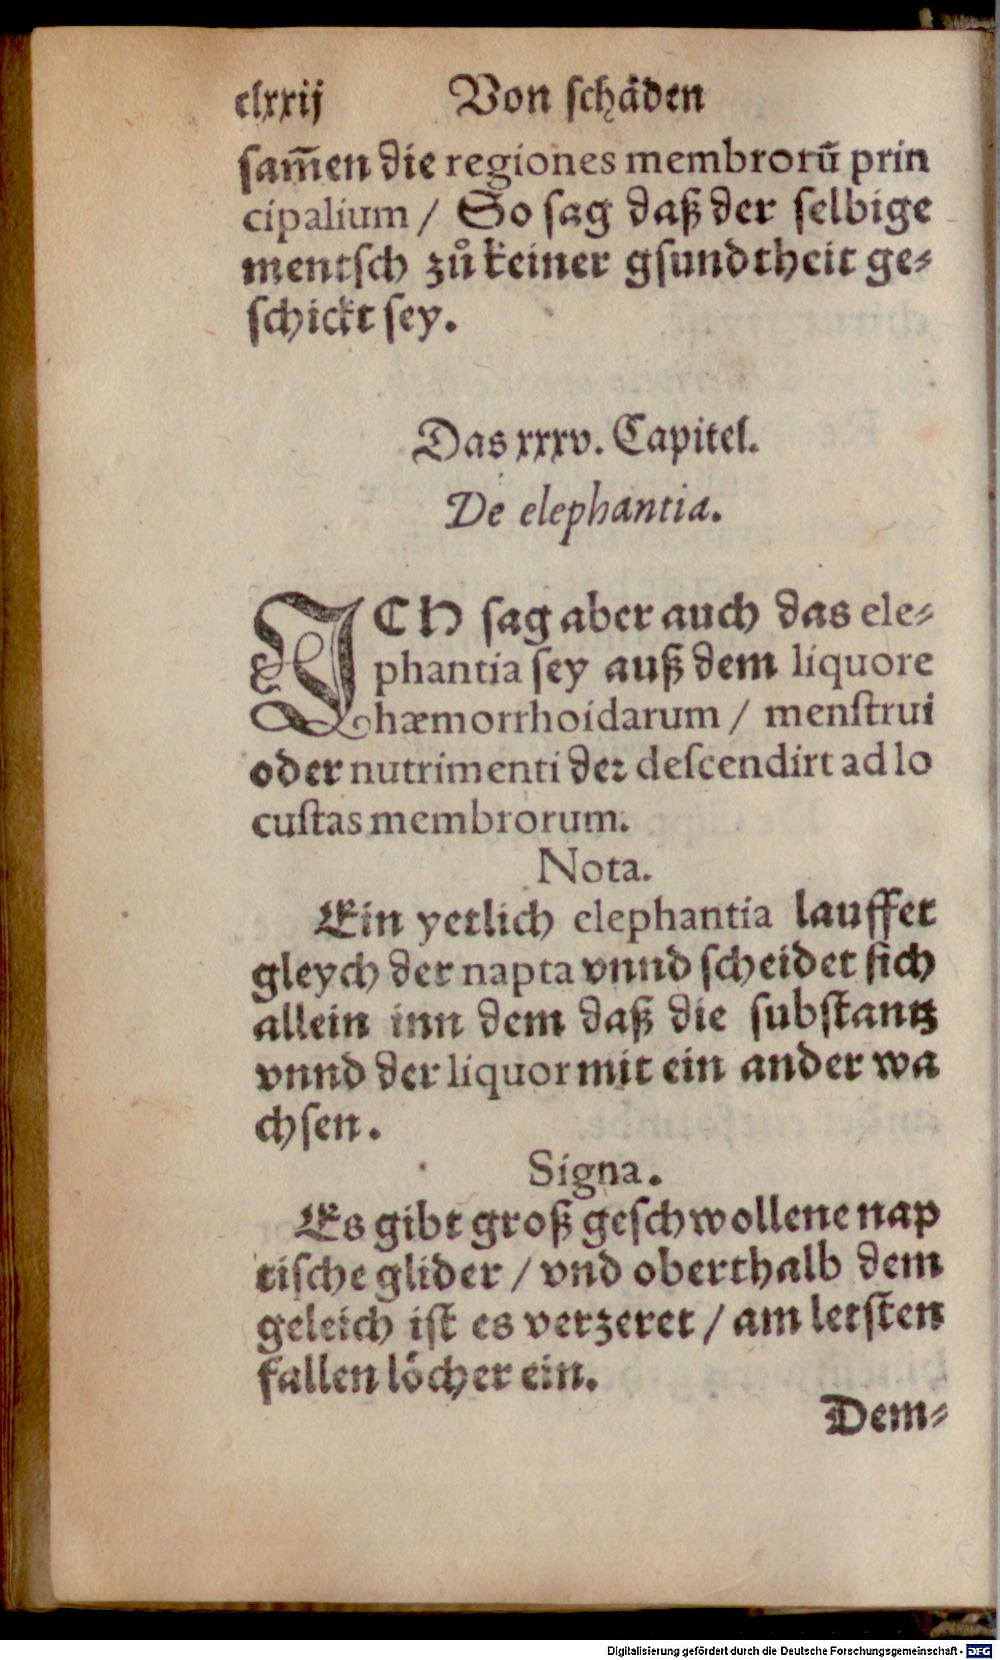 clxxij Von schäden
sam̃en die regiones membrorũ prin
cipalium / So sag daß der selbige
mentsch zů keiner gsundtheit ge⸗
schickt sey.
Das xxxv. Capitel.
De elephantia.
ICH sag aber auch das ele⸗
phantia sey auß dem liquore
hæmorrhoidarum / menstrui
oder nutrimenti der descendirt ad lo
custas membrorum.
Nota.
Ein yetlich elephantia lauffet
gleych der napta vnnd scheidet sich
allein inn dem daß die substantz
vnnd der liquor mit ein ander wa
chsen.
Signa.
Es gibt groß geschwollene nap
tische glider / vnd oberthalb dem
geleich ist es verzeret / am letsten
fallen löcher ein.
Dem⸗
Digitalisierung gefördert durch die Deutsche Forschungsgemeinschaft - DFG